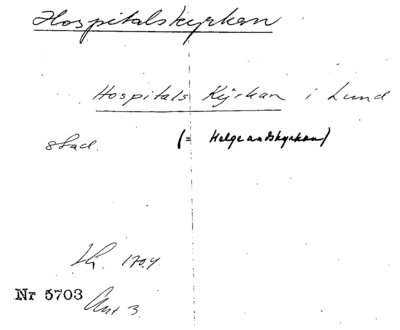 Hospitalskyrkan
Hospitals Kyrkan i Lund
stad. (= Helgeandskyrkan)
Lh. 1704
Nr 5703 Ant 3.